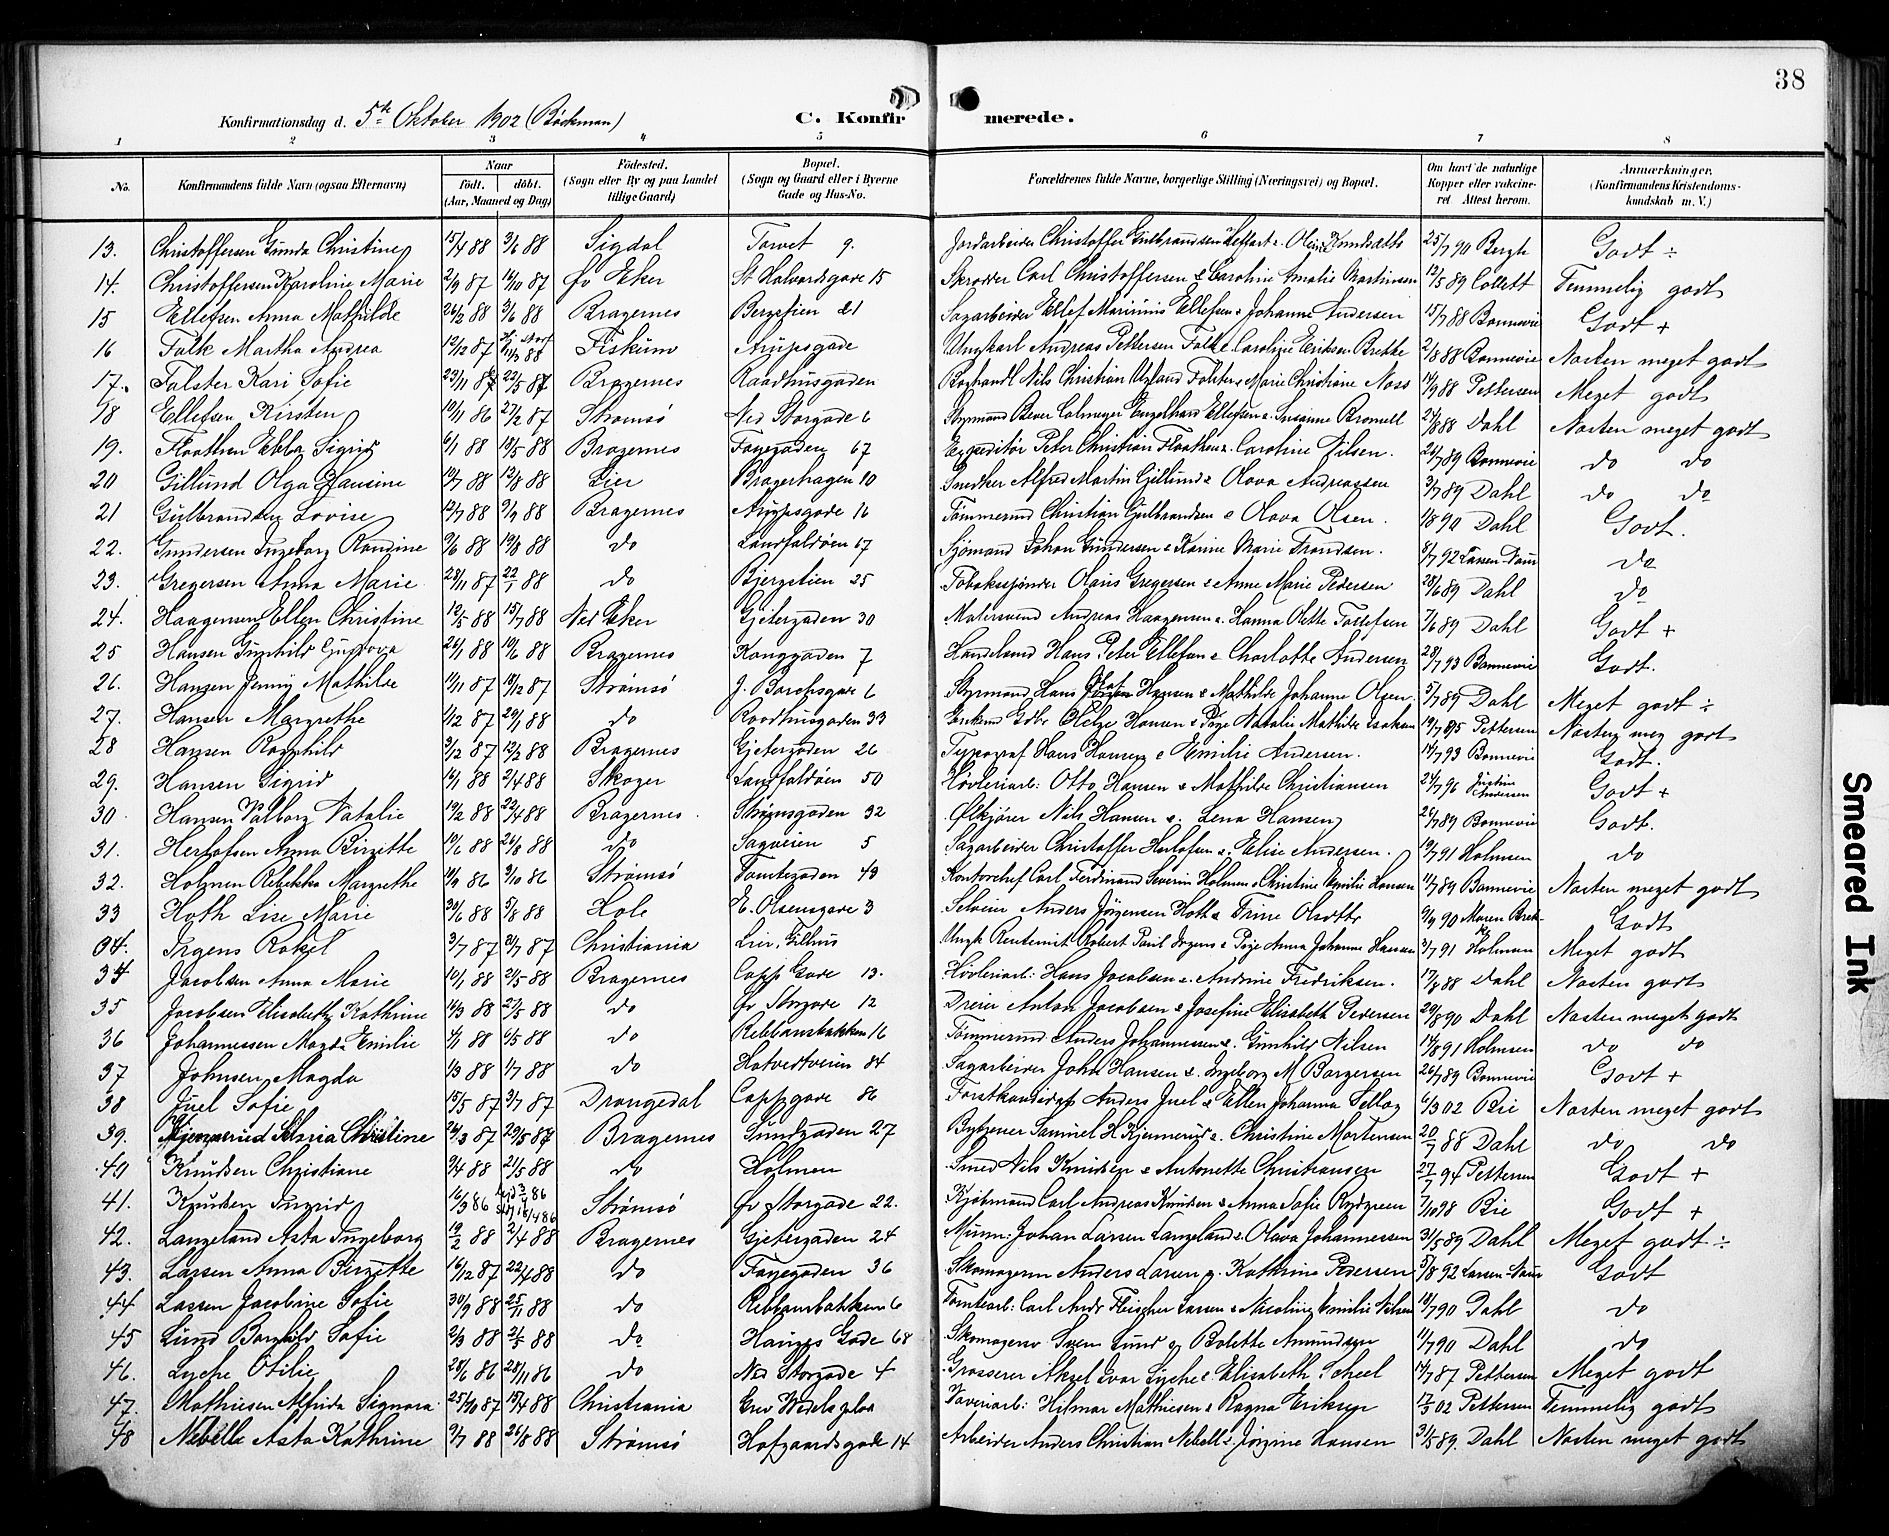 38
Konfirmationsdag d. 5te Oktober 1902 (Böckman) C. Konfirmerede.
1 2 3 4 5 6 7 8
No. Konfirmandens fulde Navn (ogsaa Efternavn) Naar födt. döbt. (Aar, Maaned og Dag) Födested. (Sogn eller By og paa Landet tillige Gaard) Bopæl. (Sogn og Gaard eller i Byerne Gade og Hus-No. Forældrenes fulde Navne, borgerlige Stilling (Næringsvei) og Bopæl. Om havt de naturlige Kopper eller vakcineret Attest herom. Anmærkninger. (Konfirmandens Kristendomskundskab m. V.)
13. Christoffersen Gunda Christine 15/4 88 3/6 88 Sigdal Torvet 9. Jordarbeider Christoffer Gulbrandsen 25/7 90 Bergh Godt ÷
14. Christoffersen Karoline Marie 2/9 87 16/10 87 Øv Eker St Halvardsgade 15 Skrædder Carl Christoffersen & Caroline Amalie Martinsen 12/5 89 Collett Temmelig godt
15 Ellefsen Anna Mathilde 26/2 88 3/6 88 Bragernes Bergstien 21 Sagarbeider Ellef Marinius Ellefsen & Johanne Andersen 15/7 88 Bonnevie Godt +
16 Falk Martha Andrea 12/12 87 Fiskum Arupsgade Ungkarl Andreas Pettersen Falk & Caroline Eriksen Brekke 2/8 88 Bonnevie Næsten meget godt
17. Falster Kari Sofie 22/5 87 Bragernes Raadhusgaden Boghandl Nils Christian Ugland Falster & Marie Christiane Noss 14/9 88 Pettersen Meget godt
18 Ellefsen Kirsten 19/11 86 27/2 87 Strømsø Ned Storgade 6 Styrmand Engelhard Ellefsen & Susanne 88 Dahl Næsten meget godt
19. Flaathen Ebba Sigrid 6/1 88 10/5 88 Bragernes Fayegaden 67 Expeditør Peter Christian Flaathen & Caroline Nilsen. 89 Bonnevie do do
20 Gillund Olga Hansine 10/7 88 12/8 88 Lier Bragerhagen 10 Snedker Alfred Martin Gjellund & Olava Andreassen 3/7 89 Dahl do do
21 Gulbrandsen Lovise 12/7 88 9/9 88 Bragernes Arupsgade 16 Tømmermd Christian Gulbrandsen & Olava Olsen. 1/8 90 Dahl Godt.
22. Gundersen Ingeborg Randine 9/6 88 19/8 88 do Landfaldøen 67 Sjømand Johan Gundersen & Karine Marie Frandsen. 8/7 92 Larsen-Naur do
23. Gregersen Anna Marie 28/11 87 22/1 88 do Bjergstien 25 Tobaksspinder Olaus Gregersen & Anne Marie Pedersen 28/6 89 Dahl do
24. Haagensen Ellen Christine 12/5 88 15/7 88 Ned Eker Gjetergaden 30 Malersvend Andreas Haagensen & Hanna Olette Tollefsen 7/6 89 Dahl Godt +
25 Hansen Gunhild Gustava 26/1 88 10/6 88 Bragernes Konggaden 7 Handelsmd Hans Peter Ellefsen & Charlotte Andersen 28/7 93 Bonnevie Godt.
26. Hansen Jenny Mathilde 11/11 87 18/12 87 Strømsø J. Borchsgade 6 Styrmand Hans Olaf Hansen & Mathilde Johanne Olsen 5/7 89 Dahl Meget godt ÷
27. Hansen Margrethe 1/12 87 29/1 88 do Raadhusgaden 33 Enkemd Gdbr Helge Hansen & Pige Natalie Mathilde Isaksen 95 Pettersen Næsten meg godt
28 Hansen Ragnhild 3/12 87 12/2 88 Bragernes Gjetergaden 26 Typograf Hans Hansen & Emilie Andersen. 14/7 93 Bonnevie Godt.
29. Hansen Sigrid 14/1 88 2/4 88 Skoger Landfaldøen 50 Høvleriarb: Otto Hansen & Mathilde Christiansen 24/7 96 Andersen Godt +
30. Hansen Valborg Natalie 19/2 88 22/4 88 Bragernes. Strømsgaden 32 Ølkjører Nils Hansen & Lena Hansen 24/7 89 Bonnevie Godt.
31. Herlofsen Anna Birgitte 10/6 88 26/8 88 do Sagveien 5 Sagarbeider Christoffer Herlofsen & Elise Andersen. 19/7 91 Holmsen do
32. Holmen Rebekka Margrethe 11/9 86 3/10 86 Strømsø Tomtegaden 43 Kontorchef Carl Ferdinand Severin Holmen & Christine Emilie Hansen 11/7 89 Bonnevie Næsten meget godt
33 Hoth Lise Marie 30/6 88 5/8 88 Hole E. Olsensgade 3 Selveier Anders Jörgensen Hoth & Trine Olsdtr 9/9 90 Maren Brek- Godt
34. Irgens Rakel 3/7 87 21/7 87 Christiania Lier, Gilhus Ungk Rentenist Robert Paul Irgens & Pige Anna Johanne Hansen 3/7 91 Holman Meget godt
34 Jacobsen Anna Marie 10/1 88 21/5 88 Bragernes Capp Gade 13. Høvleriarb: Hans Jacobsen & Andrine Fredriksen. 17/8 88 Dahl Næsten godt
35 Jacobsen Elisabeth Kathrine 16/3 88 27/5 88 do Øv Storgade 12 Dreier Anton Jacobsen & Josefine Elisabeth Pedersen 29/8 90 Dahl Næsten meget godt
36 Johannessen Magda Emilie 4/1 88 6/5 88 do Ribbansbakken 16 Tømmermd Anders Johannessen & Gunhild Nilsen 14/8 91 Holmsen do do
37 Johnsen Magda 1/3 88 1/7 88 do Hotvedtveien 84 Sagarbeider John Hansen & Ingeborg M Borgersen 26/7 89 Bonnevie Godt +
38 Juel Sofie 15/5 87 3/7 87 Drangedal Cappgade 86 Forstkandidat Anders Juel & Ellen Johanna Selboe 6/3 02 Bie Næsten meget godt
39. Kjennerud Maria Christine 26/3 87 29/5 87 Bragernes Sundgaden 27 Bygener Samuel H Kjennerud & Christine Mortensen 20/7 88 Dahl do do
40 Knudsen Christiane 9/4 88 21/5 88 do Holmen Smed Nils Knudsen & Antonette Christiansen 27/7 94 Pettersen Godt +
41. Knudsen Ingrid 16/3 86 Strømsø Øv Storgade 22. Kjøbmand Carl Andreas Knudsen & Anna Sofie Rydgreen 7/10 98 Bie Godt +
42. Langeland Asta Ingeborg 19/2 88 2/4 88 Bragernes Gjetergaden 24 Murm: Johan Larsen Langeland & Olava Johannessen 31/5 89 Dahl Meget godt ÷
43. Larsen Anna Birgitte 16/12 87 22/4 88 do Fayegaden 36 Skomagerm Anders Larsen & Kathrine Pedersen 5/8 92 Larsen-Naur Godt
44 Larsen Jacobine Sofie 30/9 88 25/11 88 do Ribbansbakken 6 Tomtearb: Carl Andr Fleischer Larsen & Nicoline Emilie Nilsen 18/7 90 Dahl do
45 Lund Borghild Sofie 2/3 88 2/5 88 do Hauges Gade 68 Skomagersv Sven Lund og Bolette Amundsen 11/7 90 Dahl do
46. Lyche Otilie 28/6 86 28/11 86 do Ned Storgade 4 Grosserer Aksel Ivar Lyche & Elisabeth Scheel 14/7 87 Pettersen Meget godt
47. Mathiesen Alfrida Signora 25/10 87 15/4 88 Christiania Grev Wedels plas Væveriarb: Hilmar Mathiesen & Ragna Eriksen 12/3 02 Pettersen Temmelig godt
48 Nebelle Asta Kathrine 9/7 88 26/8 88 Strømsø Hofgaardsgade 14 Arbeider Anders Christian Nebell & Jørgine Hansen 31/5 89. Dahl Næsten meget godt
Smeared Ink